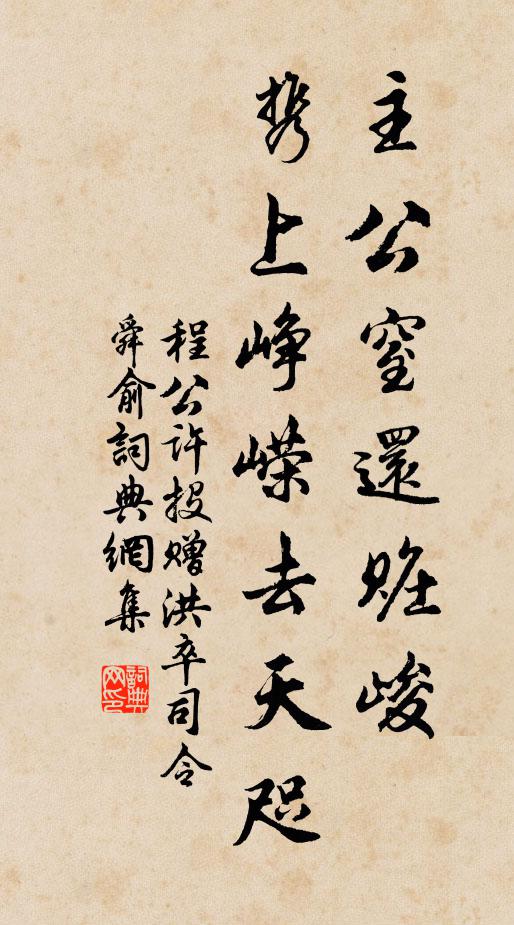 主公窒還賍峻
携上峥嶸去天咫
程公許投贈洪卒司令
舜俞詞典網集
詞典网印